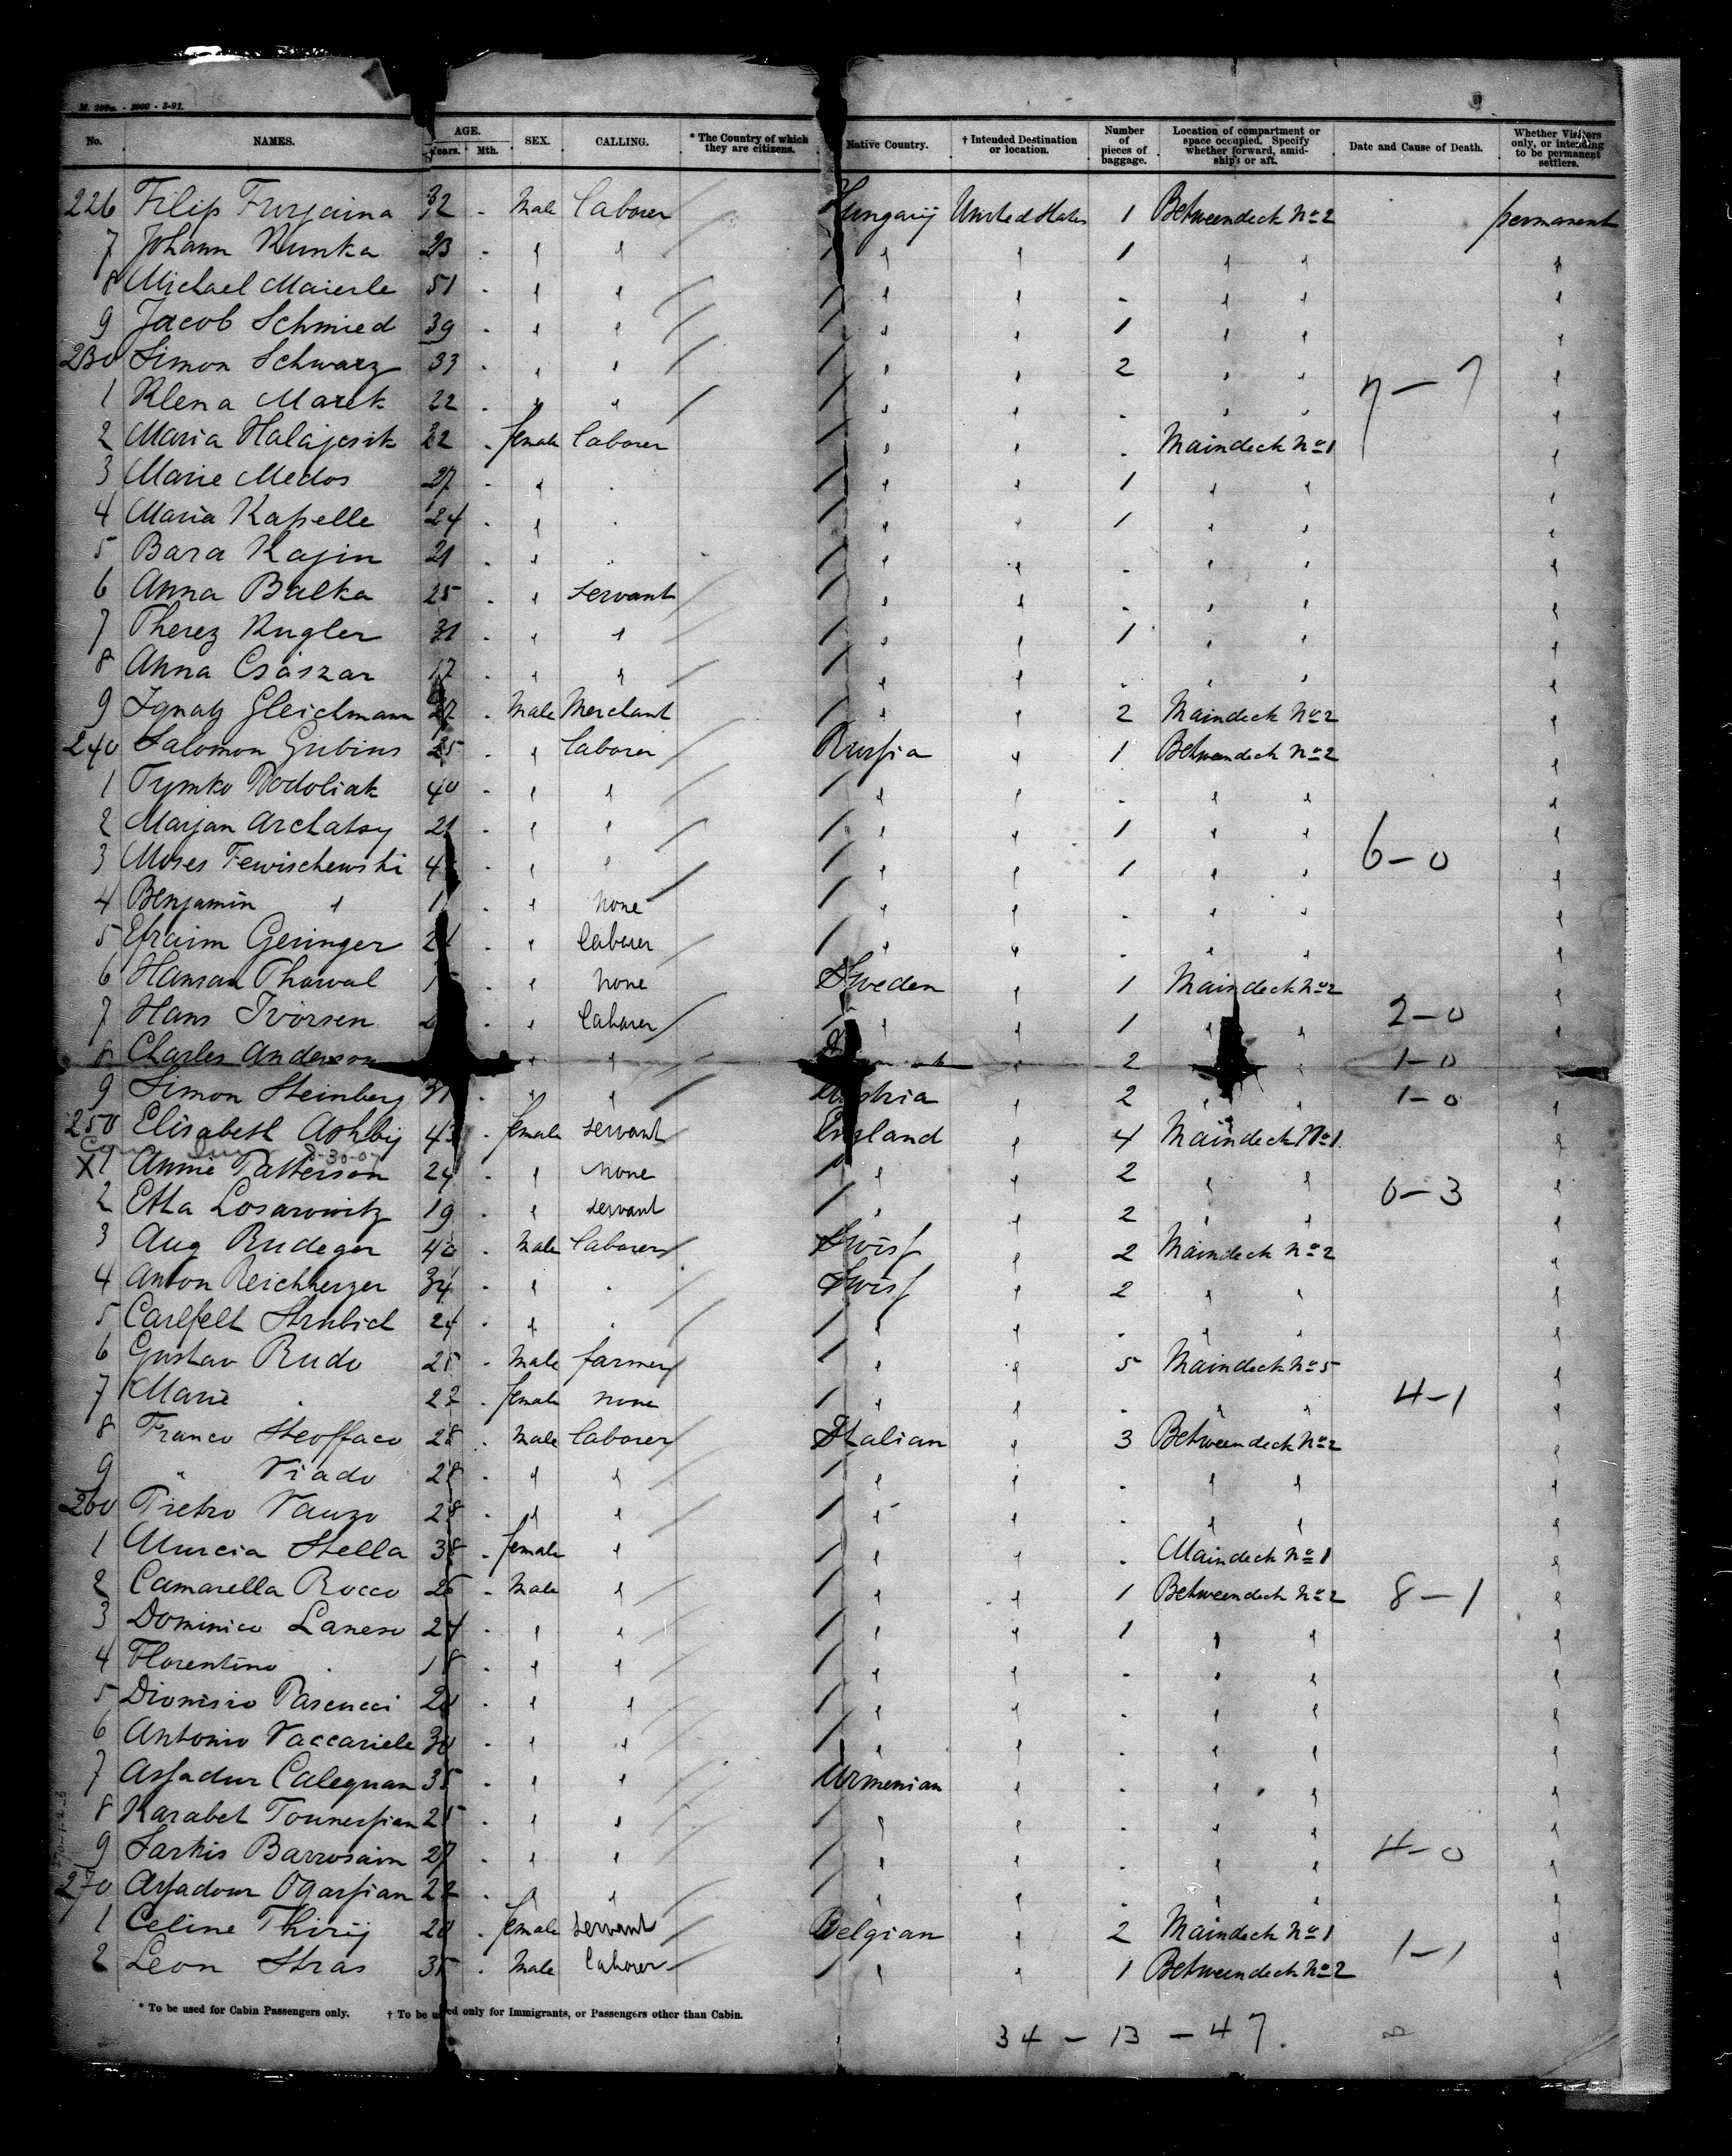 M. 299a. - 1000 - 3-91.
No. NAMES. AGE. Years. Mth. SEX. CALLING. * The Country of which they are citizens. Native Country. † Intended Destination or location. Number of pieces of baggage. Location of compartment or space occupied. Specify whether forward, amidship's or aft. Date and Cause of Death. Whether Visitors only, or intending to be permanent settlers.
226 Filip Furjaina 32 - Male laborer Hungarij United States 1 Betweendeck No 2 permanent
7 Johann Kunka 23 - " " " " 1 " " "
8 Michael Maierle 51 - " " " " - " " "
9 Jacob Schmied 39 - " " " " 1 " " "
230 Simon Schwarz 33 - " " " " 2 " " "
7-7
1 Klena Marek 22 - " " " " - " " "
2 Maria Halajcsik 22 - female laborer " " - Maindeck No 1 "
3 Marie Medos 27 - " " " " 1 " " "
4 Maria Kapelle 24 - " " " " 1 " " "
5 Bara Kajin 21 - " " " " - " " "
6 Anna Balka 25 - " servant " " - " " "
7 Therez Kugler 31 - " " " " 1 " " "
8 Anna Császar 17 - " " " " - " " "
9 Ignatz Gleichmann - Male Merchant " " 2 Maindeck No 2 "
240 Salomon Gubins 25 - " laborer Russia " 1 Betweendeck No 2 "
1 Tymko Podoliak 40 - " " " " - " " "
2 Marjan Archatsy 21 - " " " " 1 " " "
3 Moses Fewischewski 4 - " " " " 1 " " 6-0 "
4 Benjamin " 1 - " none " " - " " "
5 Efraim Geringer 2 - " laborer " " - " " "
6 Hansan Tharval - " none Sweden " 1 Maindeck No 2 "
7 Hans Ivorsen " laborer " " 1 " " 2-0 "
8 Charles Anderson " " " 2 " 1-0 "
9 Simon Steinberg 31 - " " Austria " 2 " " 1-0 "
250 Elisabeth Ashbij 43 - female servant England " 4 Maindeck No 1 "
X 1 Annie Patterson 24 - " none " " 2 " " "
2 Etta Losarowitz 19 - " servant " " 2 " " 0-3 "
3 Aug Rudeger 40 - Male laborer Swiss " 2 Maindeck No 2 "
4 Anton Reichherzer 34 - " " Swiss " 2 " " "
5 Carlfelt Strubich 24 - " " " " - " " "
6 Gustav Rudo 25 - Male farmer " " 5 Maindeck No 5 "
7 Marie " 22 - female none " " - " " 4-1 "
8 Franco Steoffaco 28 - Male laborer Italian " 3 Betweendeck No 2 "
9 " Viado 28 - " " " " - " " "
260 Pietro Vauzo 28 - " " " " - " " "
1 Murcia Stella 38 - female " " " - Maindeck No 1 "
2 Camarella Rocco 26 - Male " " " 1 Betweendeck No 2 8-1 "
3 Dominico Laneso 24 - " " " " 1 " " "
4 Florentino " 18 - " " " " - " " "
5 Dionisio Pascucci 20 - " " " " - " " "
6 Antonio Vaccariele 30 - " " " " - " " "
7 Assadur Calequan 35 - " " Armenian " - " " "
8 Karabet Tounessian 25 - " " " " - " " "
9 Sarkis Barrosain 27 - " " " " - " " 4-0 "
270 Assadour Ogassian 22 - " " " " - " " "
1 Celine Thirij 20 - female servant Belgian " 2 Maindeck No 1 "
1-1
2 Leon Stras 35 - Male laborer " " 1 Betweendeck No 2 "
* To be used for Cabin Passengers only. † To be used only for Immigrants, or Passengers other than Cabin.
34 - 13 - 47.